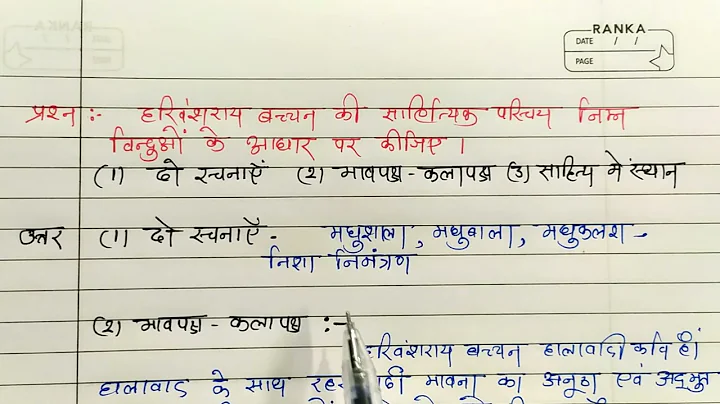 RANKA
DATE / /
PAGE
प्रश्न :- हरिवंशराय बच्चन की साहित्यिक परिचय निम्न
विन्दुओं के आधार पर कीजिए।
(1) दो रचनाएँ (2) भावपक्ष - कलापक्ष (3) साहित्य में स्थान
उत्तर (1) दो रचनाएँ - मधुशाला, मधुबाला, मधुकलश -
निशा निमंत्रण
(2) भावपक्ष - कलापक्ष :-
हरिवंशराय बच्चन हालावादी कवि हैं।
हालावाद के साथ भावना का अनूठा एवं अद्भुत